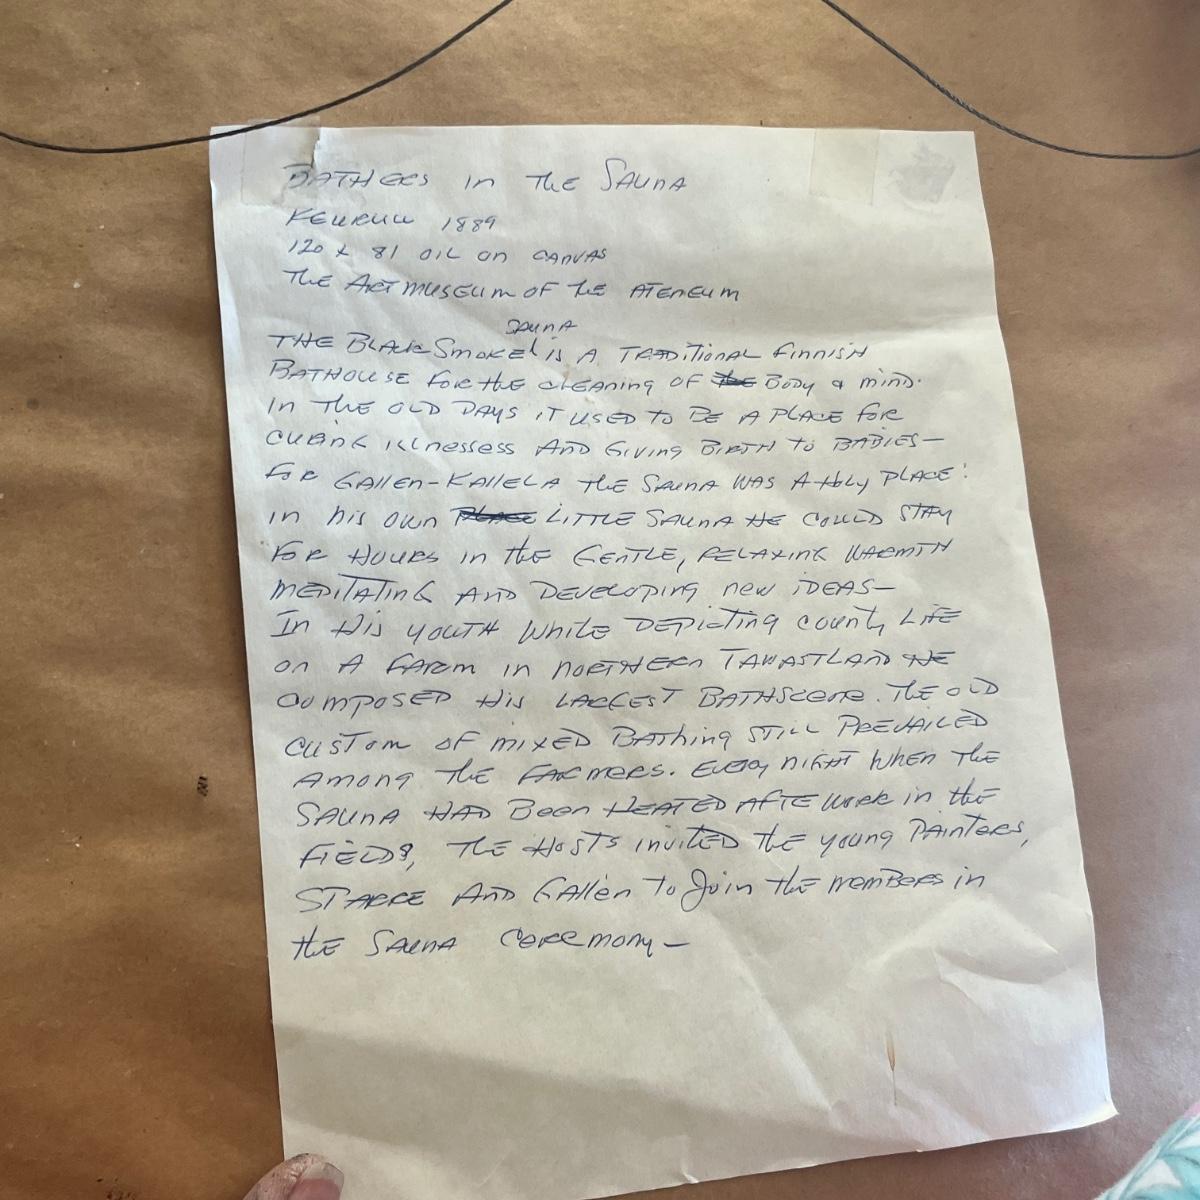 BATHERS in THE SAUNA
KEURUU 1889
120 x 81 OIL on CANVAS
THE ART MUSEUM OF THE ATENEUM
SAUNA
THE BLACK SMOKE IS A TRADITIONAL FINNISH
BATHOUSE FOR THE CLEANING OF THE BODY & MIND.
IN THE OLD DAYS IT USED TO BE A PLACE FOR
CURING ILLNESSESS AND GIVING BIRTH TO BABIES—
FOR GALLEN-KALLELA THE SAUNA WAS A HOLY PLACE:
IN HIS OWN PLACE LITTLE SAUNA HE COULD STAY
FOR HOURS IN THE GENTLE, RELAXING WARMTH
MEDITATING AND DEVELOPING NEW IDEAS—
IN HIS YOUTH WHILE DEPICTING COUNTY LIFE
ON A FARM IN NORTHERN TAWASTLAND HE
COMPOSED HIS LARGEST BATHSCENE. THE OLD
CUSTOM OF MIXED BATHING STILL PREVAILED
AMONG THE FARMERS. EVERY NIGHT WHEN THE
SAUNA HAD BEEN HEATED AFTE WORK IN THE
FIELDS, THE HOSTS INVITED THE YOUNG PAINTERS,
SPARRE AND GALLEN TO JOIN THE MEMBERS IN
THE SAUNA CEREMONY—